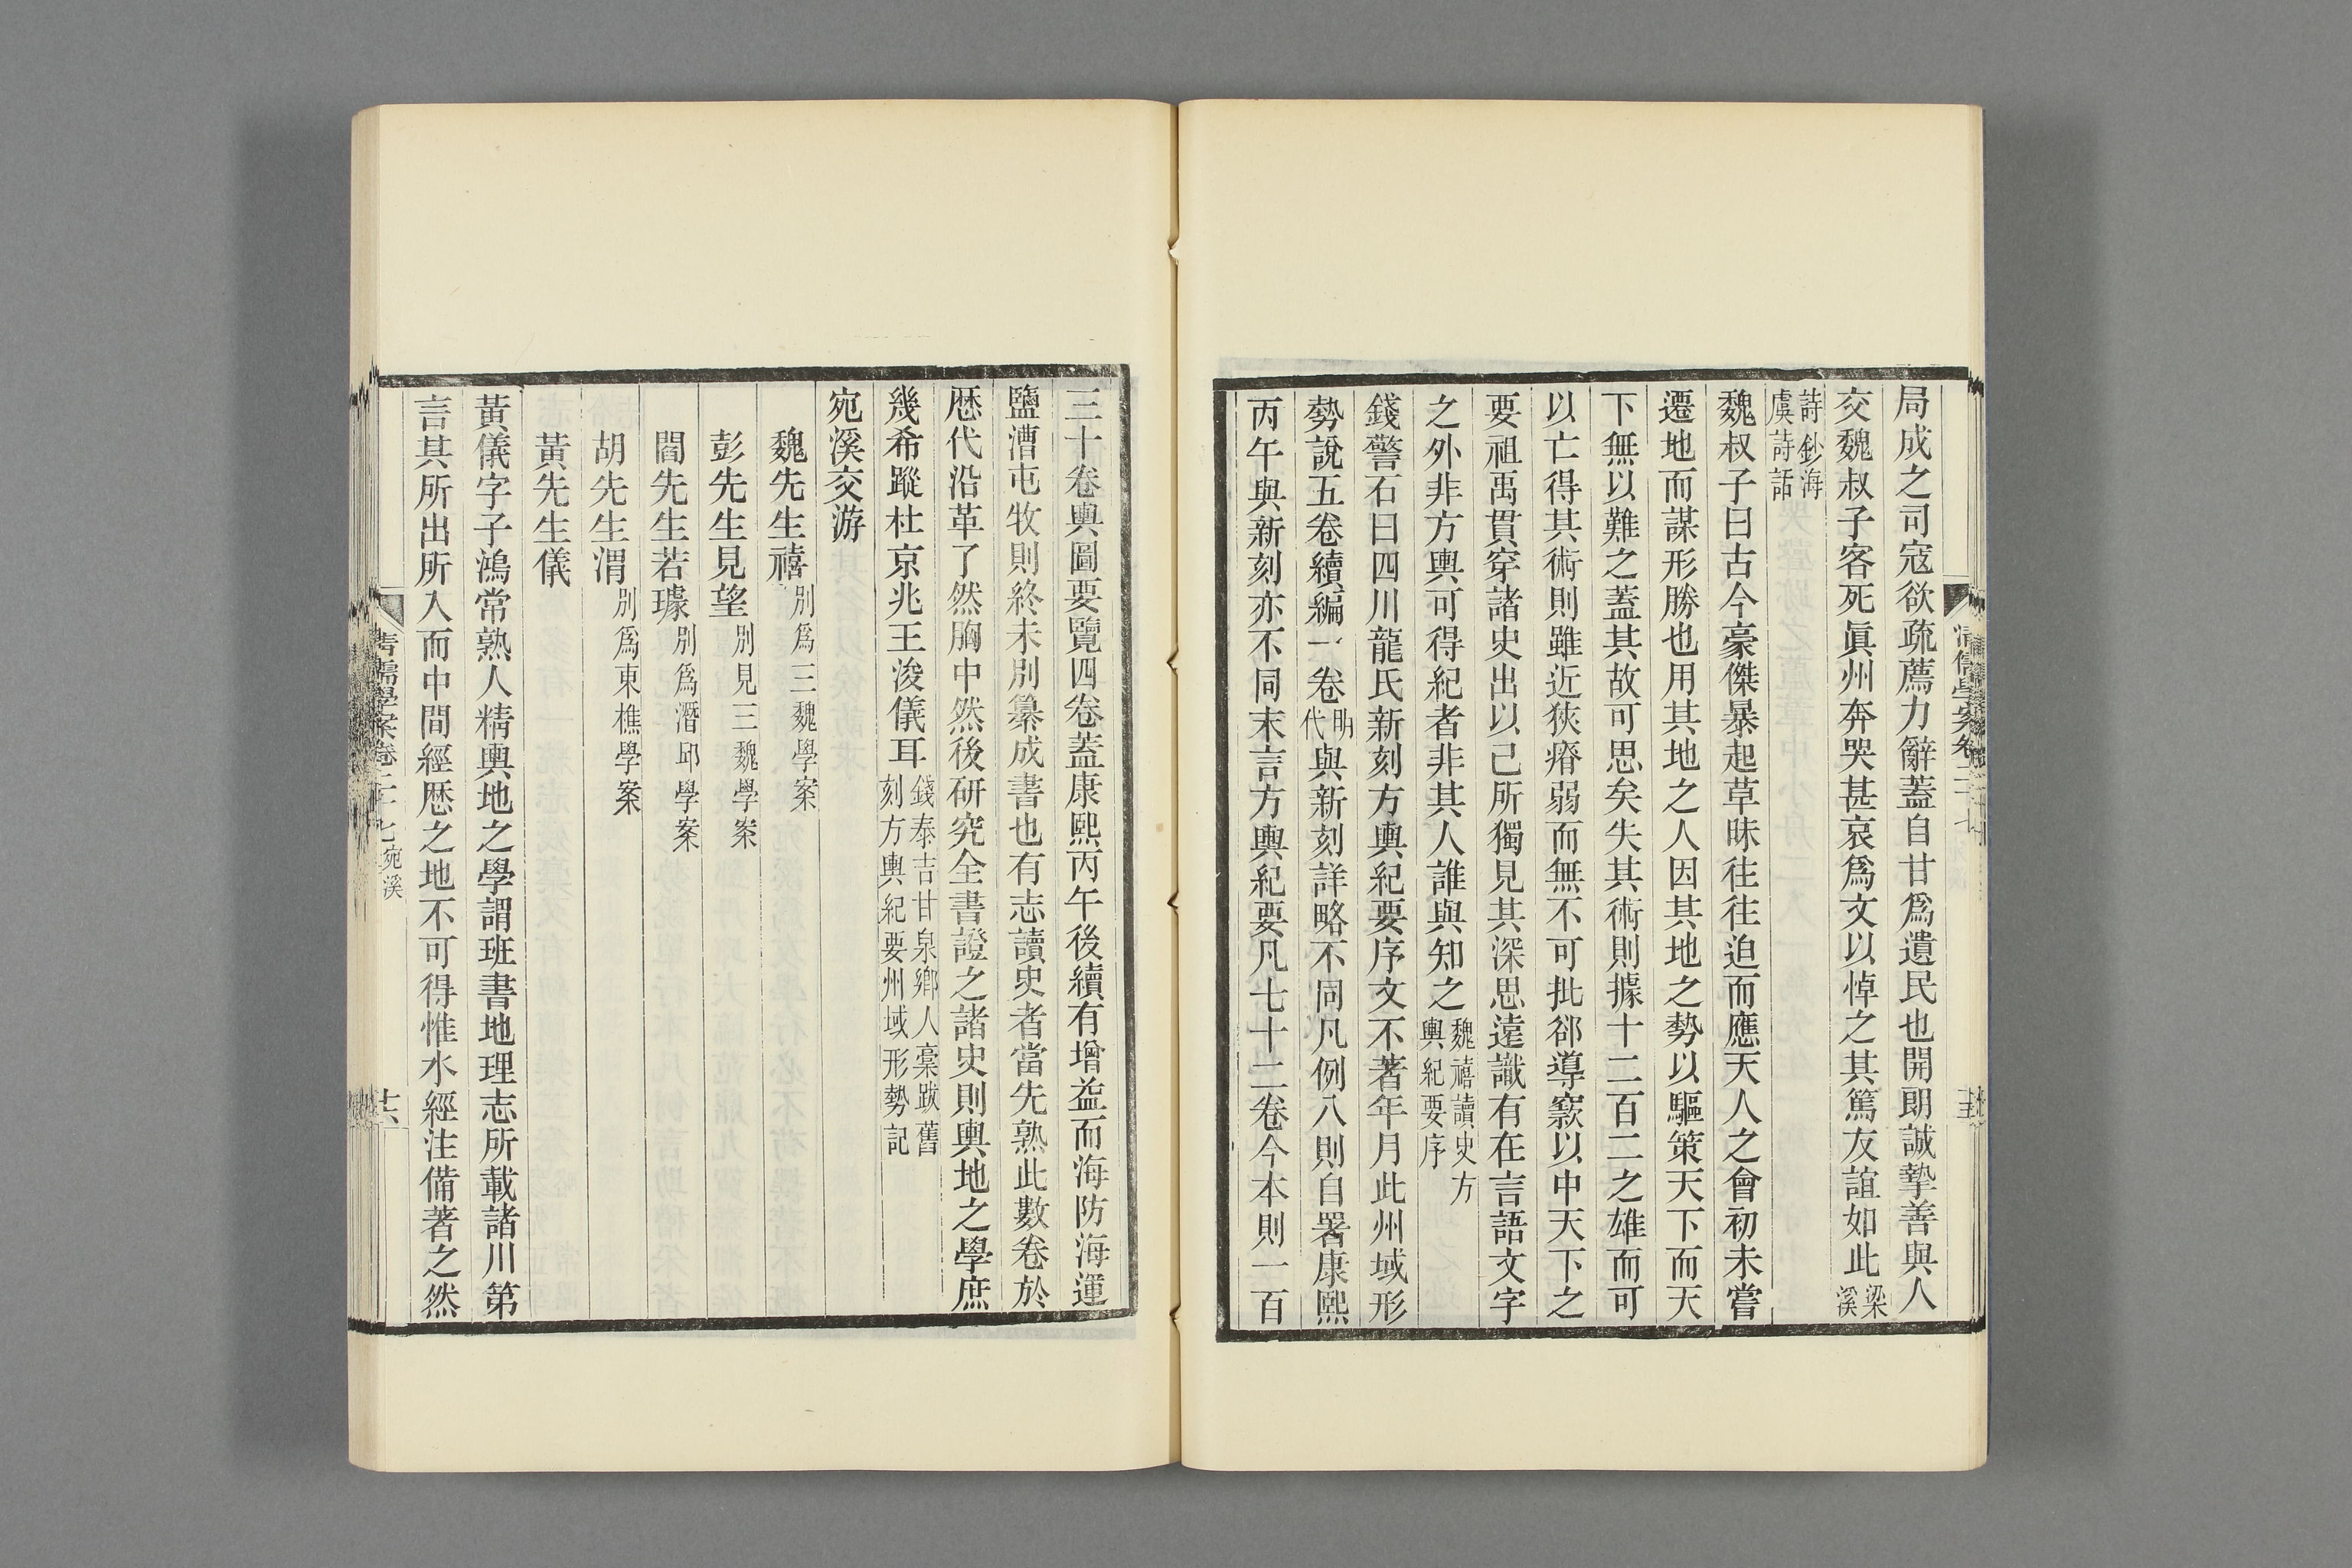 局成之司寇欲疏薦力辭蓋自甘爲遺民也開朗誠摯善與人
交魏叔子客死眞州奔哭甚哀爲文以悼之其篤友誼如此梁溪
詩鈔海虞詩話
魏叔子曰古今豪傑暴起草昧往往迫而應天人之會初未嘗
遷地而謀形勝也用其地之人因其地之勢以驅策天下而天
下無以難之蓋其故可思矣失其術則據十二百二之雄而可
以亡得其術則雖近狹瘠弱而無不可批郤導窾以中天下之
要祖禹貫穿諸史出以己所獨見其深思遠識有在言語文字
之外非方輿可得紀者非其人誰與知之魏禧讀史方輿紀要序
錢警石曰四川龍氏新刻方輿紀要序文不著年月此州域形
勢說五卷續編一卷明代與新刻詳略不同凡例八則自署康熙
丙午與新刻亦不同末言方輿紀要凡七十二卷今本則一百
三十卷輿圖要覽四卷蓋康熙丙午後續有增益而海防海運
鹽漕屯牧則終未別纂成書也有志讀史者當先熟此數卷於
歷代沿革了然胸中然後研究全書證之諸史則輿地之學庶
幾希蹤杜京兆王浚儀耳錢泰吉甘泉鄉人稾跋舊刻方輿紀要州域形勢記
宛溪交游
魏先生禧別爲三魏學案
彭先生見望別見三魏學案
閻先生若璩別爲潛邱學案
胡先生渭別爲東樵學案
黃先生儀
黃儀字子鴻常熟人精輿地之學謂班書地理志所載諸川第
言其所出所入而中間經歷之地不可得惟水經注備著之然
清儒學案卷二十七宛溪
十六